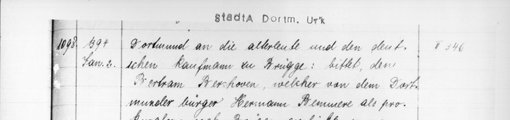 StadtA Dortm. Urk
1098 1394 Dortmund an die alterleute und den deut- II 346
Jan. 2. schen kaufmann zu Brügge: bittet, dem
Bertram Berchoven, welcher von dem Dort-
munder bürger Hermann Remmere als pro-